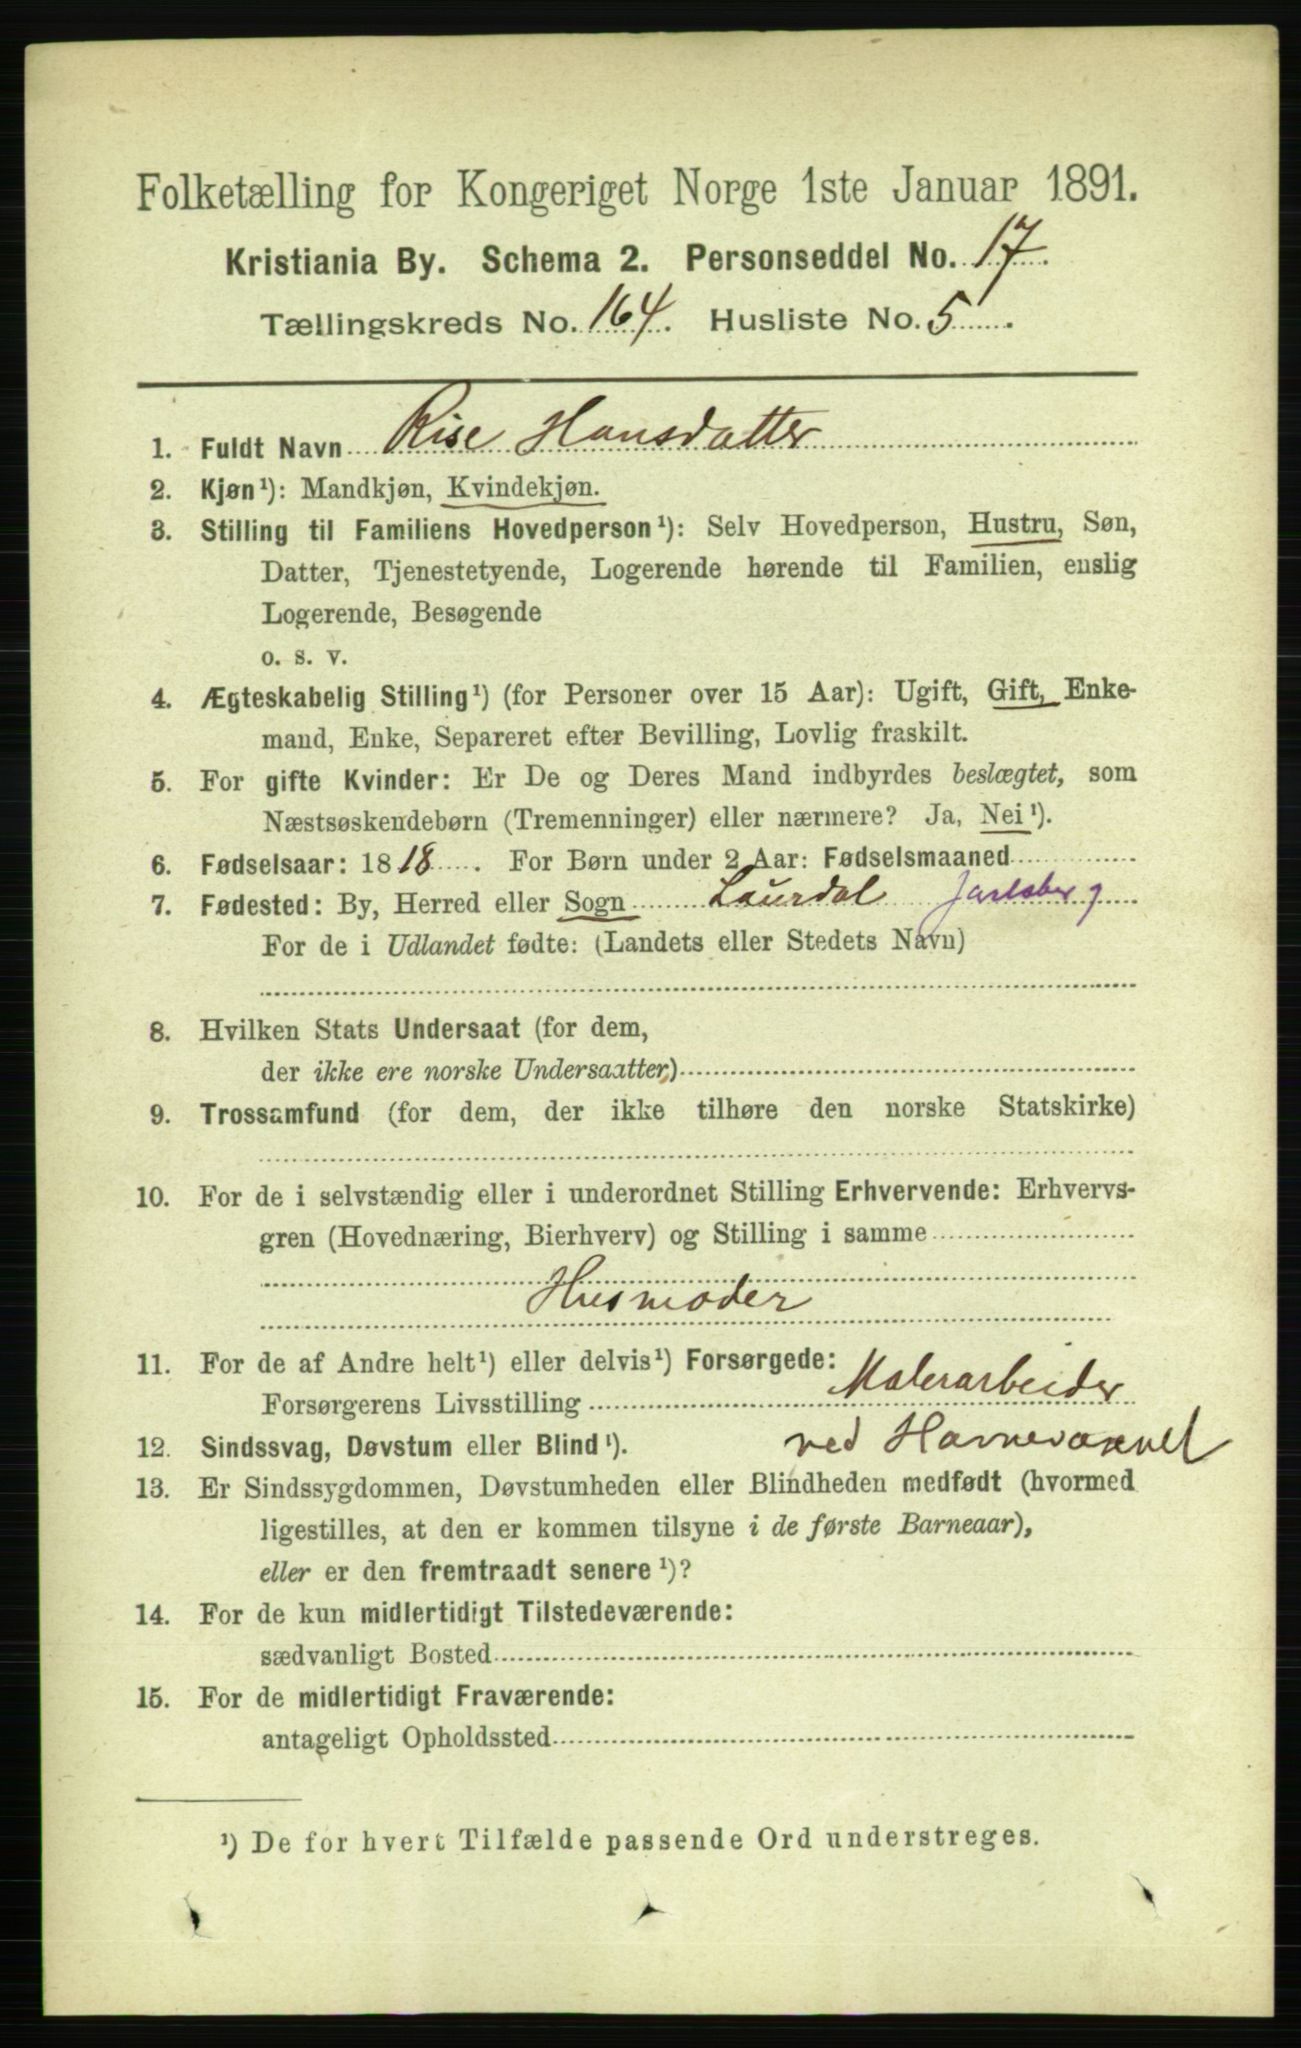 Folketælling for Kongeriget Norge 1ste Januar 1891.
Kristiania By. Schema 2. Personseddel No. 17.
Tællingskreds No. 164. Husliste No. 5.
1. Fuldt Navn Rise Hansdatter
2. Kjøn¹): Mandkjøn, Kvindekjøn.
3. Stilling til Familiens Hovedperson¹): Selv Hovedperson, Hustru, Søn,
Datter, Tjenestetyende, Logerende hørende til Familien, enslig
Logerende, Besøgende
o. s. v.
4. Ægteskabelig Stilling¹) (for Personer over 15 Aar): Ugift, Gift, Enke-
mand, Enke, Separeret efter Bevilling, Lovlig fraskilt.
5. For gifte Kvinder: Er De og Deres Mand indbyrdes beslægtet, som
Næstsøskendebørn (Tremenninger) eller nærmere? Ja, Nei¹).
6. Fødselsaar: 1818. For Børn under 2 Aar: Fødselsmaaned
7. Fødested: By, Herred eller Sogn Laurdal Jarlsberg
For de i Udlandet fødte: (Landets eller Stedets Navn)
8. Hvilken Stats Undersaat (for dem,
der ikke ere norske Undersaatter)
9. Trossamfund (for dem, der ikke tilhøre den norske Statskirke)
10. For de i selvstændig eller i underordnet Stilling Erhvervende: Erhvervs-
gren (Hovednæring, Bierhverv) og Stilling i samme
Husmoder
11. For de af Andre helt¹) eller delvis¹) Forsørgede:
Forsørgerens Livsstilling Malerarbeider
12. Sindssvag, Døvstum eller Blind¹). ved
13. Er Sindssygdommen, Døvstumheden eller Blindheden medfødt (hvormed
ligestilles, at den er kommen tilsyne i de første Barneaar),
eller er den fremtraadt senere¹)?
14. For de kun midlertidigt Tilstedeværende:
sædvanligt Bosted
15. For de midlertidigt Fraværende:
antageligt Opholdssted
¹) De for hvert Tilfælde passende Ord understreges.